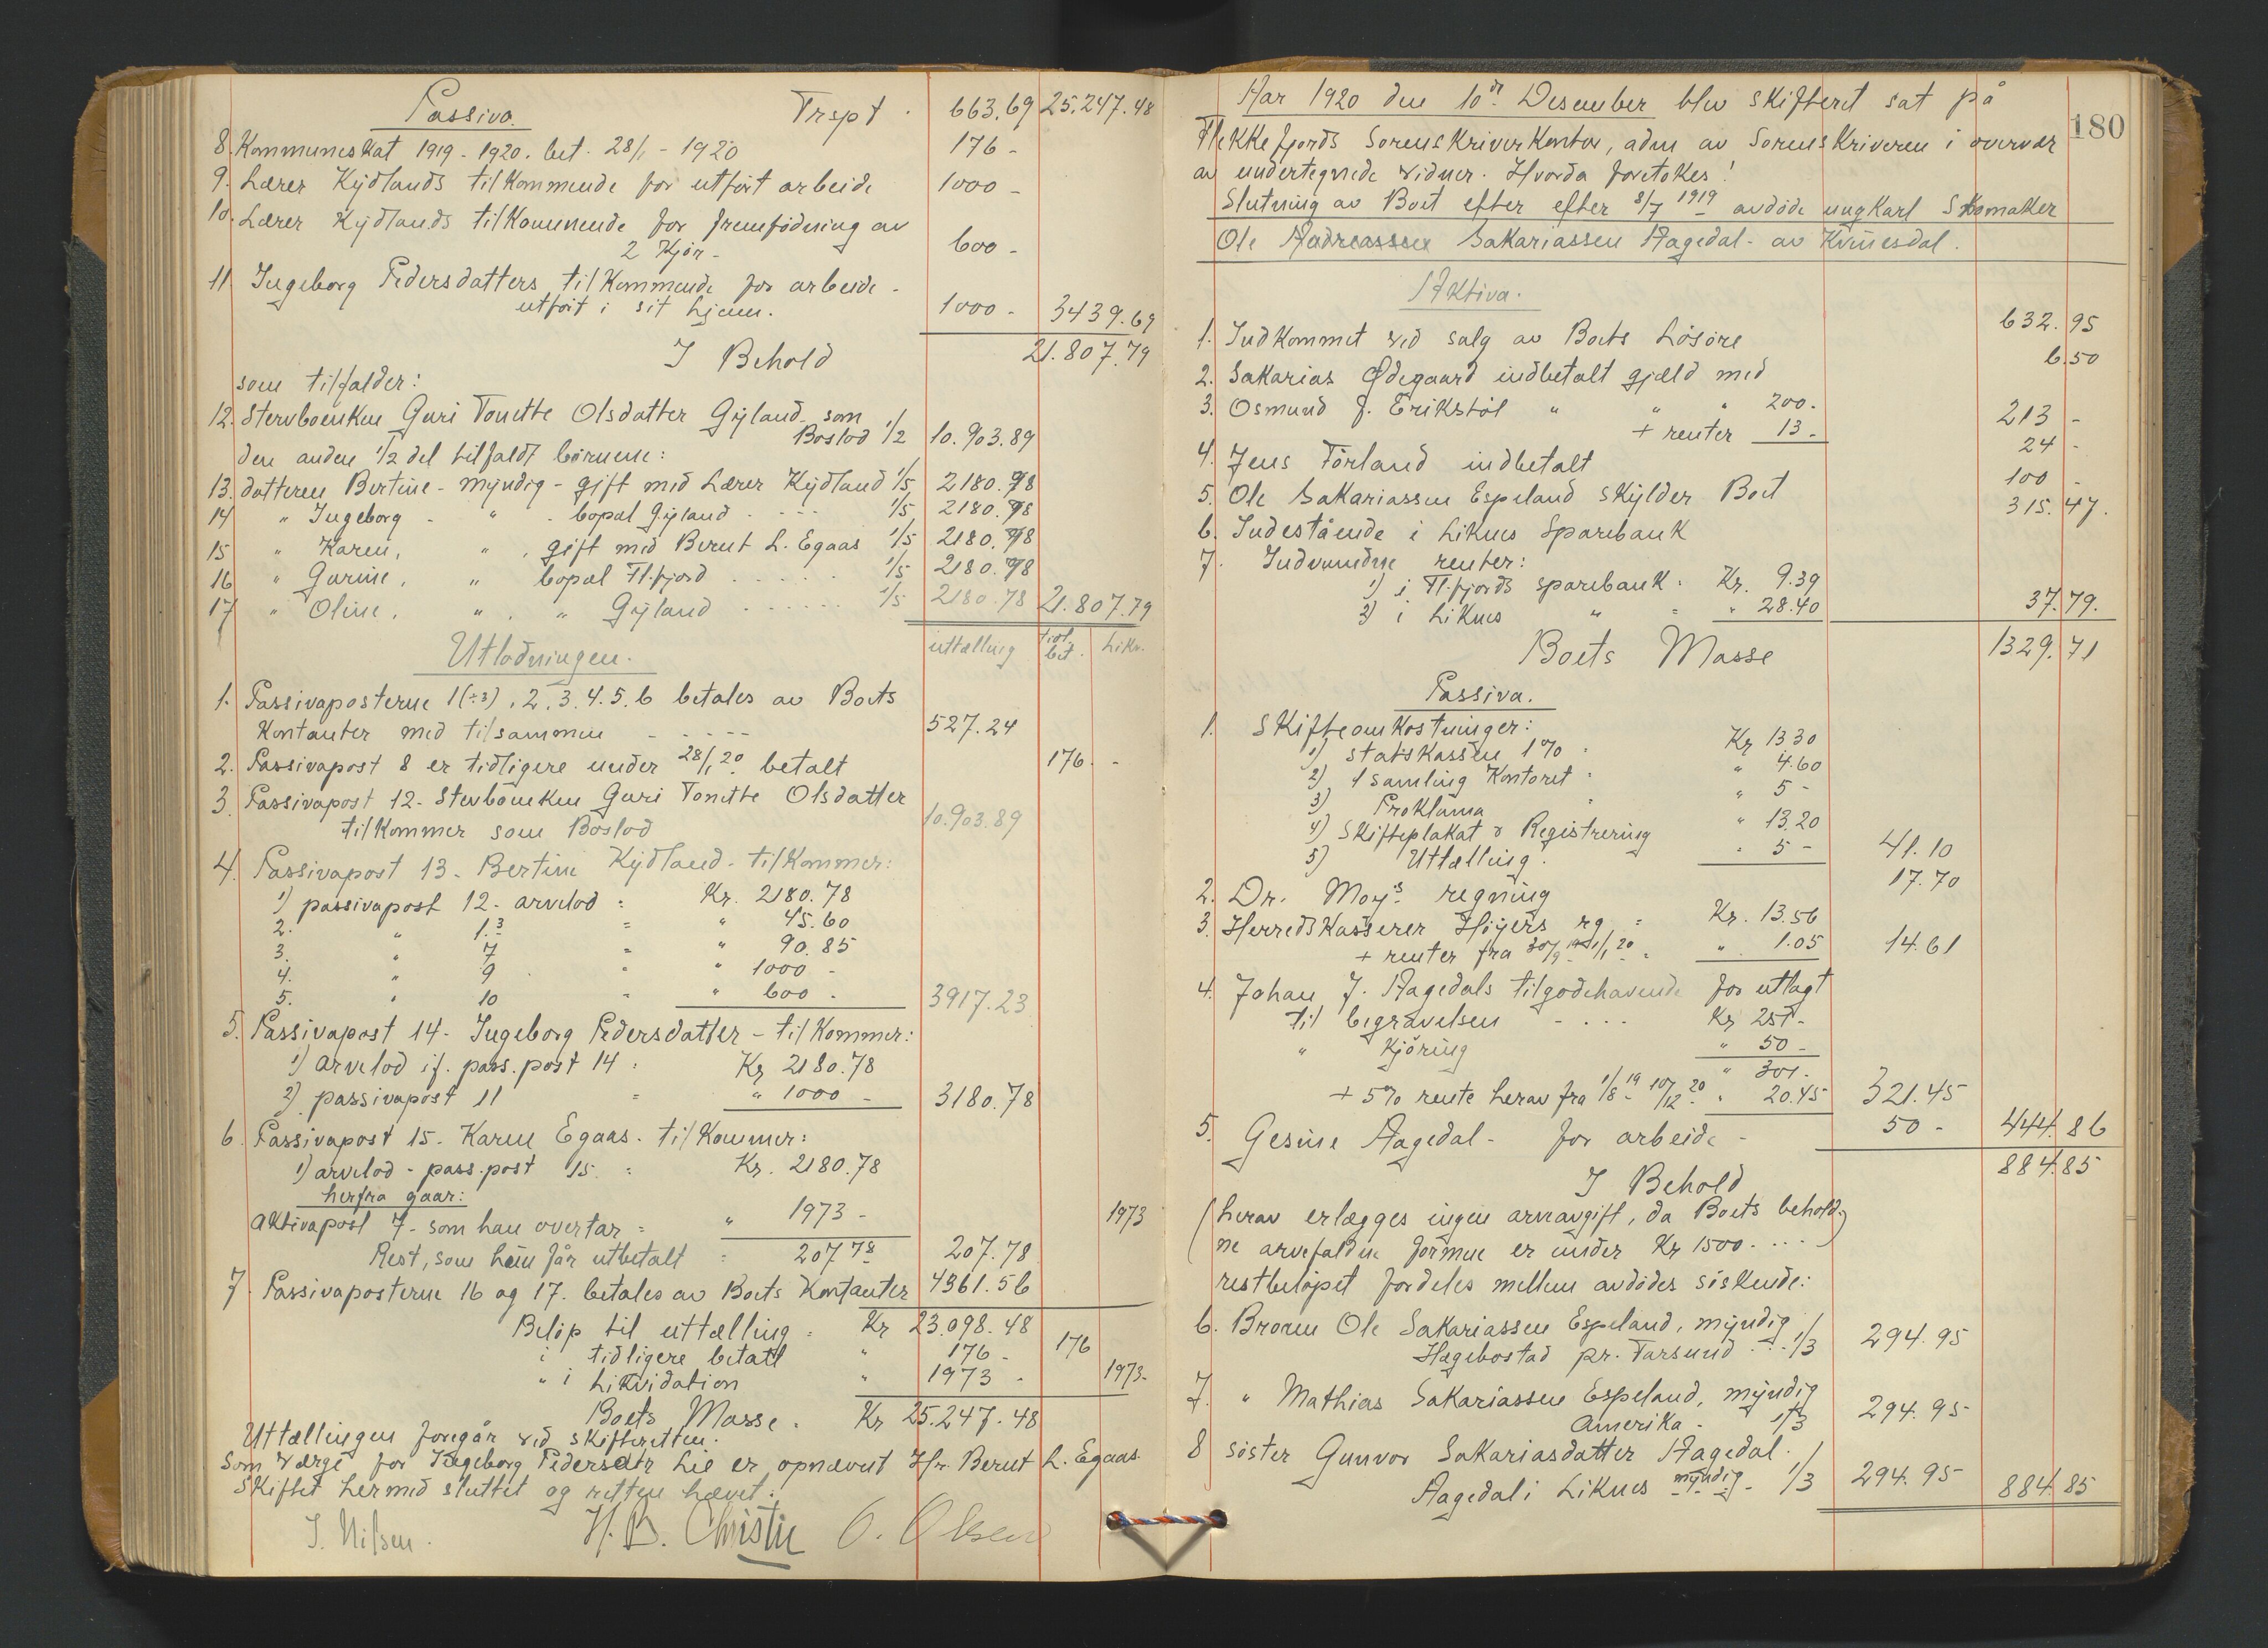 Passiva. Trspt. 663.69 25.247.48
8. Kommuneskat 1919-1920. bet. 28/1 - 1920 176 -
9. Lærer Kydlands tilkommende for utført arbeide 1000 -
10. Lærer Kydlands tilkommende for fremfödning av
2 Kjör - 600 -
11 Ingeborg Pedersdatters tilkommende for arbeide -
utført i sit hjem. 1000 - 3439.69
I Behold 21.807.79
som tilfalder:
12. Stervboenken Guri Tonette Olsdatter Gyland som
Boslod 1/2 10.903.89
den anden 1/2 del tilfaldt börnene:
13. datteren Bertine - myndig - gift med Lærer Kydland 1/5 2180.78
14 " Ingeborg - " - bopæl Gyland - - - - 1/5 2180.78
15 " Karen, " , gift med Bernt L. Egaas 1/5 2180.78
16 " Gurine, " bopæl Fl.fjord . . . . . 1/5 2180.78
17 " Oline, " . " Gyland . . . . . . 1/5 2180.78 21.807.79
Utlodningen. uttælling tidl. bet. Likv.
1. Passivaposterne 1(÷3), 2, 3. 4. 5. 6 betales av Boets
Kontanter med tilsammen - - - - - 527.24
2. Passivapost 8 er tidligere under 28/1 20 betalt 176. -
3. Passivapost 12. Stervboenken Guri Tonette Olsdatter
tilkommer som Boslod 10.903.89
4. Passivapost 13. Bertine Kydland - tilkommer:
1) passivapost 12 - arvelod = Kr. 2180.78
2. " 1.3 = " 45.60
3. " 7 = " 90.85
4. " 9 " " 1000 -
5. " 10 " " 600 - 3917.23
5. Passivapost 14 - Ingeborg Pedersdatter - tilkommer:
1) arvelod if. pass.post 14 = Kr 2180.78
2) passivapost 11 = " 1000 - 3180.78
6. Passivapost 15. Karen Egaas. tilkommer:
1) arvelod - pass.post 15 = Kr. 2180.78
herfra gaar:
Aktivapost 7 - som han overtar = " 1973 - 1973
Rest, som hun får utbetalt = 207.78 207.78
7. Passivaposterne 16 og 17. betales av Boets Kontanter 4361.56
Belöp til uttælling = Kr 23.098.48
i tidligere betalt " 176 - 176
" i Likvidation " 1973 - 1973-
Boets Masse. Kr 25.247.48
Uttællingen foregår ved skifteretten.
Som værge for Ingeborg Pedersdtr Lie er opnævnt Hr. Bernt L. Egaas.
Skiftet hermed sluttet og retten hævet.
J. Nilsen. H. B. Christie O. Olsen
180
Aar 1920 den 10de Desember blev skifteret sat på
Flekkefjords Sorenskriverkontor, adm av Sorenskriveren i overvær
av undertegnede vidner. Hvorda foretokes:
Slutning av Boet efter efter 8/7 1919 avdöde ungkarl Skomaker
Ole Andreassen Sakariassen Aagedal - av Kvinesdal.
Aktiva.
1. Indkommet ved salg av Boets Lösöre 632.95
2. Sakarias Ødegaard indbetalt gjæld med 6.50
3. Osmund J. Erikstöl " " " 200.
+ renter 13 - 213 -
4. Jens Förland indbetalt 24 -
5. Ole Sakariassen Espeland skylder Boet 100 -
6. Indestående i Liknes Sparebank 315.47.
7. Indvundne renter:
1) i Fl.fjords sparebank = Kr. 9.39
2) i Liknes " = " 28.40 37.79.
Boets Masse 1329.71
Passiva.
1. Skifteomkostninger:
1) Statskassen 1% = Kr 13.30
2) 1 samling Kontoret = " 4.60
3) Proklama " 5 -
4) Skifteplakat & Registrering " 13.20
5) Uttælling. " 5 - 41.10
2. Dr. Moys regning 17.70
3. Herredskasserer Höyers rg = Kr. 13.56
+ renter fra 30/9 19 - 1/1 20 = " 1.05 14.61
4. Johan J. Aagedals tilgodehavende for utlagt
til begravelsen - . . . Kr 251 -
" Kjöring " 50 -
" 301 -
+ 5% rente herav fra 1/8 19 - 10/12 20 " 20.45 321.45
5. Gesine Aagedal - for arbeide - 50 - 444.86
I Behold 884.85
(herav erlægges ingen arveavgift, da Boets behold-
ne arvefaldne formue er under Kr 1500. . . .)
restbelöpet fordeles mellem avdödes söskende:
6. Broren Ole Sakariassen Espeland, myndig
Hægebostad pr. Farsund . . . 1/3 294.95
7. " Mathias Sakariassen Espeland, myndig
Amerika - 1/3 294.95
8 söster Gunvor Sakariasdatter Aagedal.
Aagedal i Liknes - myndig - 1/3 294.95 884.85